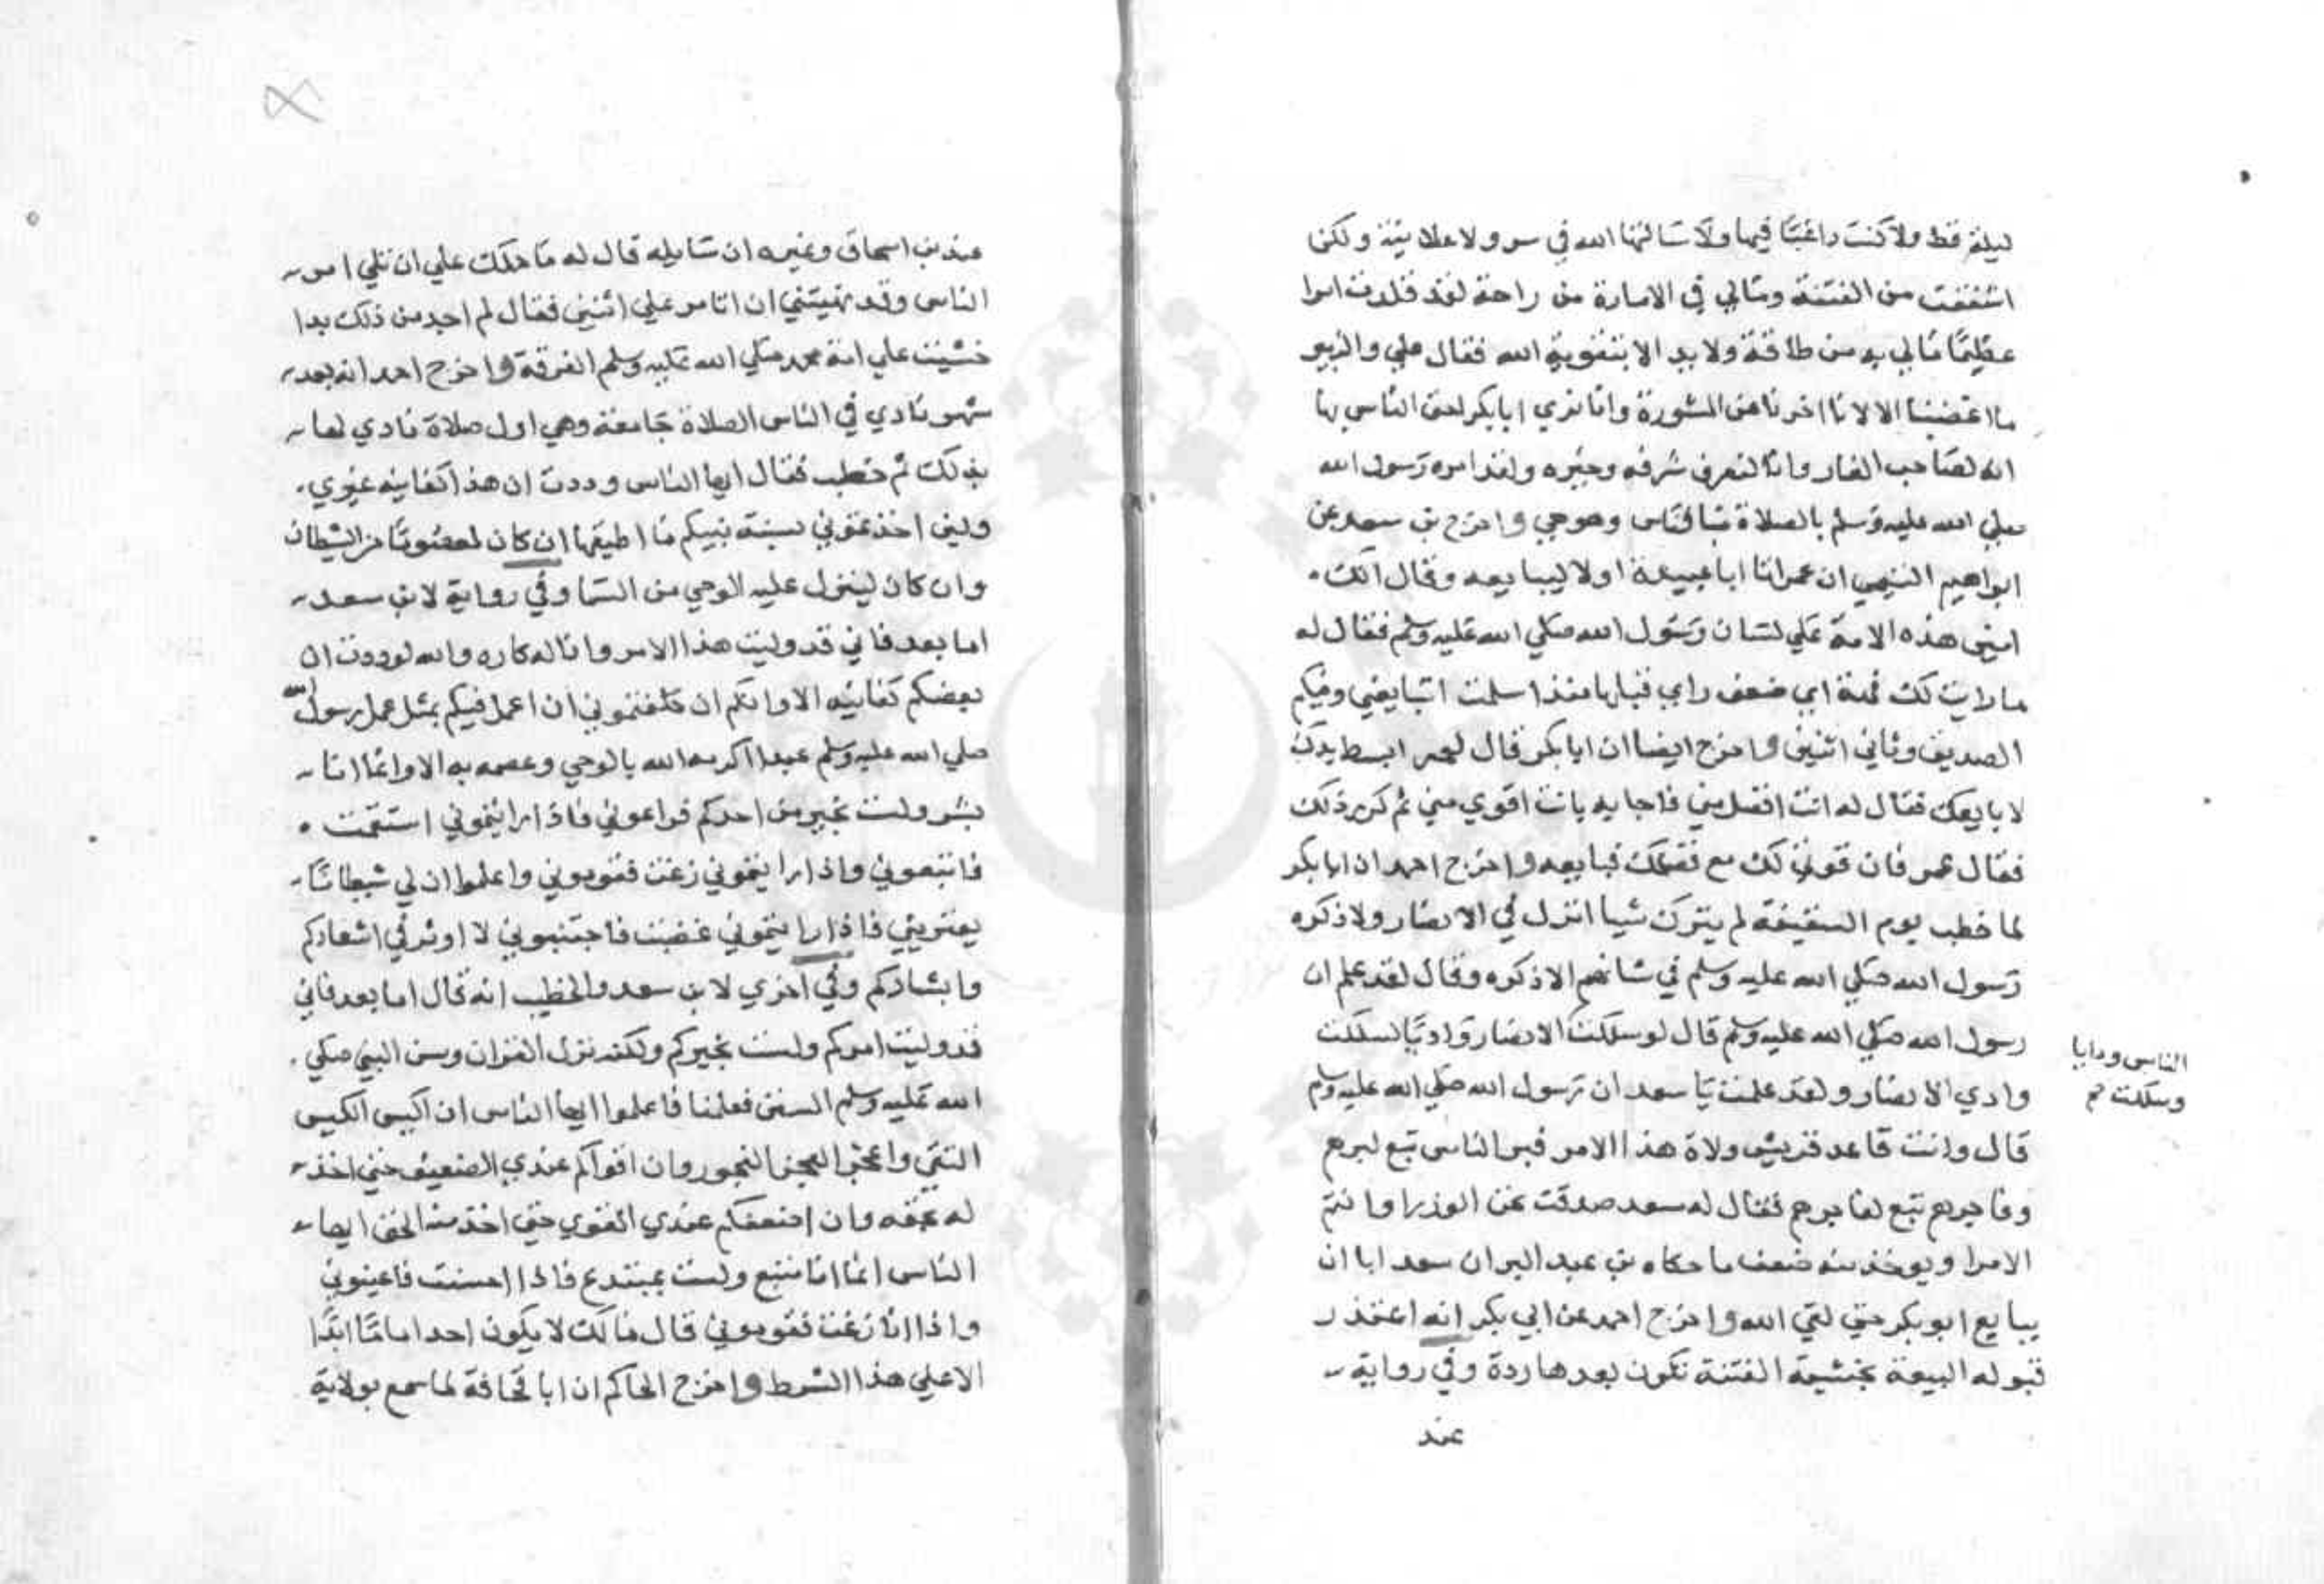 ليلة قط ولا كنت راغبًا فيها ولا سالتها الله في سر ولا علانية ولكن
اشفقت من الفتنة ومالي في الامارة من راحة لقد قلدت امرا
عظيمًا مالي به من طاقة ولا يد الا بتقوية الله فقال علي والزبير
ما اغضبنا الا لانا اخرنا عن المشورة وانا نري ابا بكر احق الناس بها
انه لصاحب الغار وانا لنعرف شرفه وخيره ولقد امره رسول الله
صلي الله عليه وسلم بالصلاة بالناس وهو حي واخرج بن سعد عن
ابراهيم التيمي ان عمر اتا ابا عبيدة اولا ليبايعه وقال انك
امين هذه الامة علي لسان رسول الله صلي الله عليه وسلم فقال له
ما رايت لك فهة اي ضعف راي قبلها منذ اسلمت اتبايعني وفيكم
الصديق وثاني اثنين واخرج ايضا ان ابا بكر قال لعمر ابسط يدك
لابايعك فقال له انت افضل مني فاجابه بانت اقوي مني ثم كرر ذلك
فقال عمر فان قوتي لك مع فضلك فبايعه واخرج احمد ان ابا بكر
لما خطب يوم السقيفة لم يترك شيا انزل في الانصار ولا ذكره
رسول الله صلي الله عليه وسلم في شانهم الا ذكره وقال لقد علم ان
رسول الله صلي الله عليه وسلم قال لو سلكت الانصار واديًا لسلكت
الناس واديا
وسلكت
وادي الانصار ولقد علمت يا سعد ان رسول الله صلي الله عليه وسلم
قال وانت قاعد قريش ولاة هذا الامر فبر الناس تبع لبرهم
وفاجرهم تبع لفاجرهم فقال له سعد صدقت نحن الوزرا وانتم
الامرا ويوخذ منه ضعف ما حكاه بن عبد البر ان سعد ابا ان
يبايع ابو بكر حتي لقي الله واخرج احمد عن ابي بكر انه اعتذر
قبوله البيعة بخشية الفتنة تكون بعدها ردة وفي رواية
عند
عند بن اسحاق وغيره ان سايله قال له ما حملك علي ان تلي امر
الناس وقد نهيتني ان اتامر علي اثنين فقال لم اجد من ذلك بدا
خشيت علي امة محمد صلي الله عليه وسلم الفرقة واخرج احمد انه بعد
شهر نادي في الناس الصلاة جامعة وهي اول صلاة نادي لها
بذلك ثم خطب فقال ايها الناس وددت ان هذا كفانيه غيري
ولين اخذتموني بسنة نبيكم ما اطيقها ان كان لمعصومًا من الشيطان
وان كان لينزل عليه الوحي من السما وفي رواية لابن سعد
اما بعد فاني قد وليت هذا الامر وانا له كاره والله لوددت ان
بعضكم كفانيه الا وانكم ان كلفتموني ان اعمل فيكم بمثل عمل رسول الله
صلي الله عليه وسلم عبدا اكرمه الله بالوحي وعصمه به الا وانما انا
بشر ولست بخير من احدكم فراعوني فاذا رايتموني استقمت
فاتبعوني واذا رايتموني زغت فقوموني واعلموا ان لي شيطانًا
يعتريني فاذا رايتموني غضبت فاجتنبوني لا اوثر في اشعاركم
وابشاركم وفي اخري لابن سعد والخطيب انه قال اما بعد فاني
قد وليت امركم ولست بخيركم ولكنه نزل القران وسن النبي صلي
الله عليه وسلم السنن فعلمنا فاعلموا ايها الناس ان اكيس الكيس
التقي واعجز العجز الفجور وان اقواكم عندي الضعيف حتي اخذ
له بحقه وان اضعفكم عندي القوي حتي اخذ منه الحق ايها
الناس انما انا متبع ولست بمبتدع فاذا احسنت فاعينوني
واذا انا زغت فقوموني قال مالك لا يكون احد امامًا ابدًا
الا علي هذا الشرط واخرج الحاكم ان ابا قحافة لما سمع بولاية